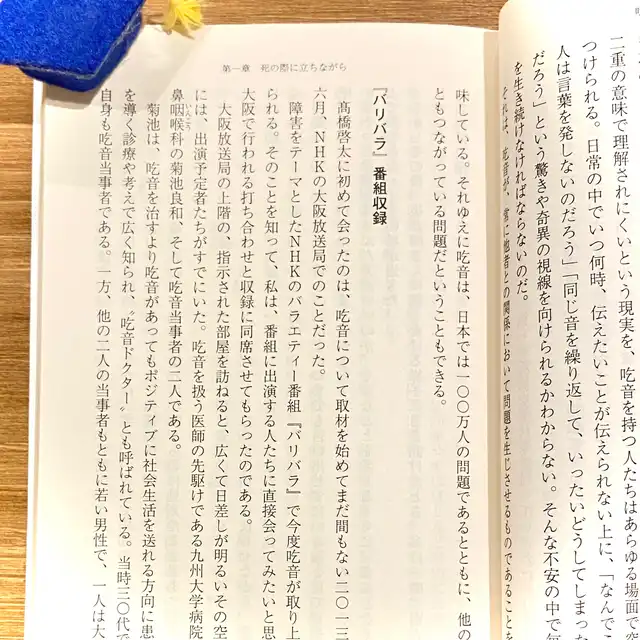 二重の意味で理解されにくいという現実を、吃音を持つ人たちはあらゆる場面で
つけられる。日常の中でいつ何時、伝えたいことが伝えられない上に、「なんでこ
人は言葉を発しないのだろう」「同じ音を繰り返して、いったいどうしてしまった
だろう」という驚きや奇異の視線を向けられるかわからない。そんな不安の中で毎
を生き続けなければならないのだ。
それは、吃音が、常に他者との関係において問題を生じさせるものであることを
第一章 死の際に立ちながら
味している。それゆえに吃音は、日本では一〇〇万人の問題であるとともに、他の
ともつながっている問題だということもできる。
『バリバラ』番組収録
髙橋啓太に初めて会ったのは、吃音について取材を始めてまだ間もない二〇一三
六月、NHKの大阪放送局でのことだった。
障害をテーマとしたNHKのバラエティー番組『バリバラ』で今度吃音が取り上
られる。そのことを知って、私は、番組に出演する人たちに直接会ってみたいと思
大阪で行われる打ち合わせと収録に同席させてもらったのである。
大阪放送局の上階の、指示された部屋を訪ねると、広くて日差しが明るいその空
には、出演予定者たちがすでにいた。吃音を扱う医師の先駆けである九州大学病院
鼻咽喉科の菊池良和、そして吃音当事者の二人である。
いんこう
菊池は、吃音を治すより吃音があってもポジティブに社会生活を送れる方向に患
を導く診療や考えで広く知られ、〝吃音ドクター〟とも呼ばれている。当時三〇代で
自身も吃音当事者である。一方、他の二人の当事者もともに若い男性で、一人は大